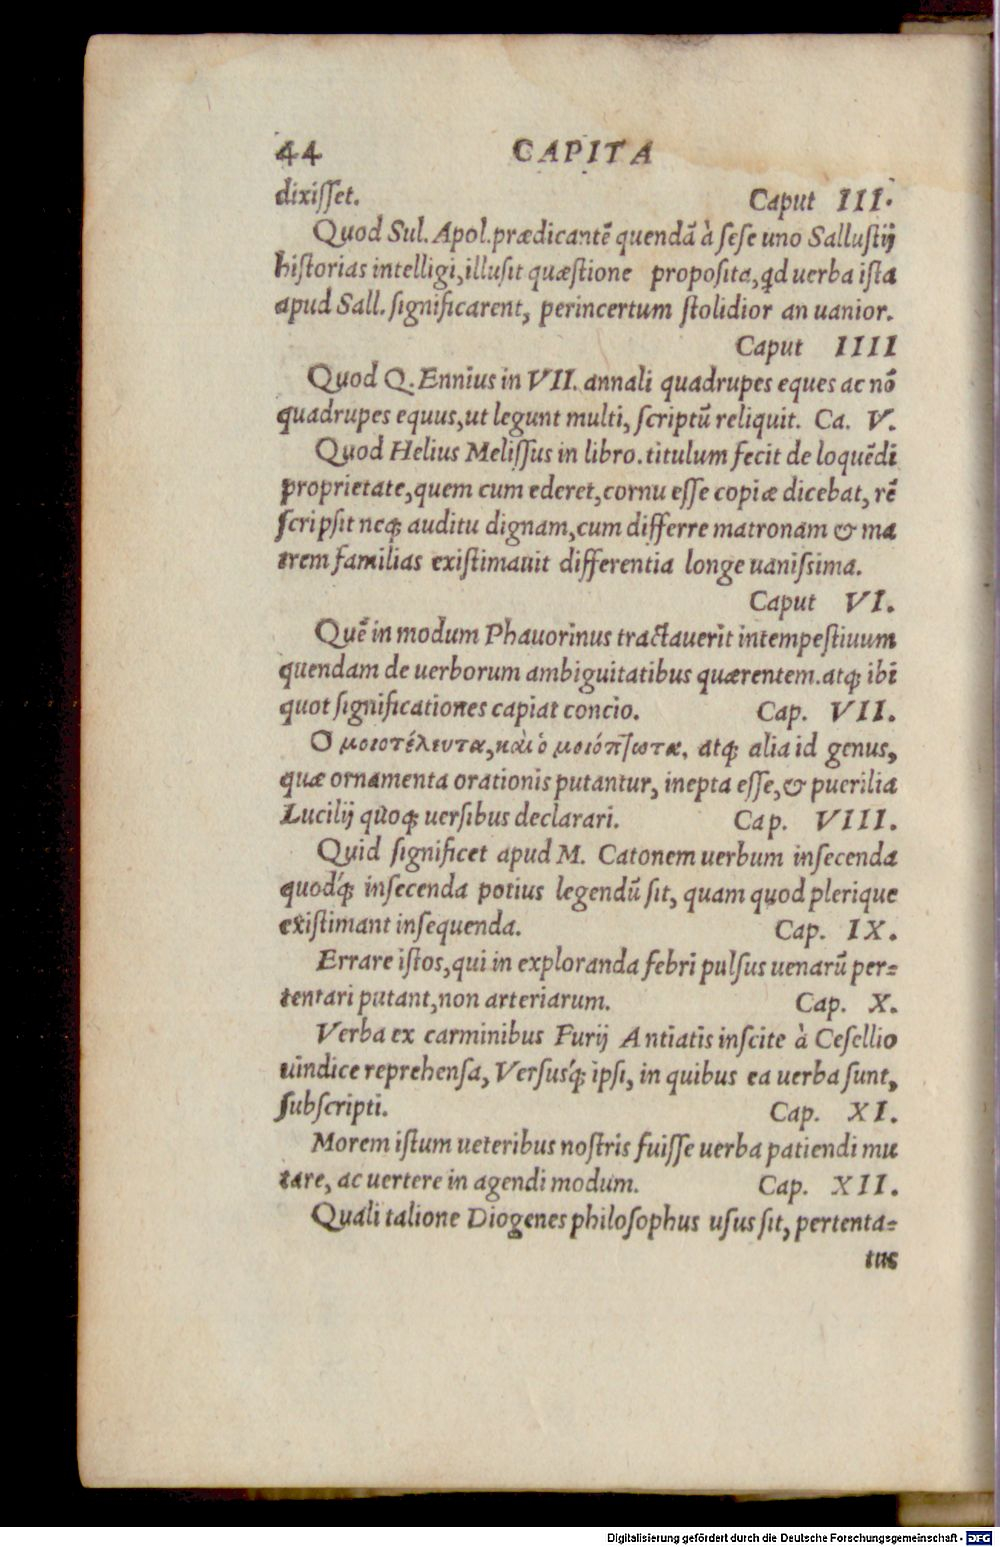 44 CAPITA
dixiſſet. Caput III.
Quod Sul. Apol.prædicantē quendā à ſeſe uno Salluſtij
hiſtorias intelligi,illuſit quæſtione propoſita,qd uerba iſta
apud Sall. ſignificarent, perincertum ſtolidior an uanior.
Caput IIII
Quod Q. Ennius in VII. annali quadrupes eques ac nō
quadrupes equus,ut legunt multi, ſcriptū reliquit. Ca. V.
Quod Helius Meliſſus in libro.titulum fecit de loquēdi
proprietate,quem cum ederet,cornu eſſe copiæ dicebat, rē
ſcripſit neq; auditu dignam,cum differre matronam & ma
trem familias exiſtimauit differentia longe uaniſsima.
Caput VI.
Quē in modum Phauorinus tractauerit intempeſtiuum
quendam de uerborum ambiguitatibus quærentem.atq; ibi
quot ſignificationes capiat concio. Cap. VII.
Ο μοιοτέλευτα,καὶ ὁ μοιόπτωτα, atq; alia id genus,
quæ ornamenta orationis putantur, inepta eſſe,& puerilia
Lucilij quoq; uerſibus declarari. Cap. VIII.
Quid ſignificet apud M. Catonem uerbum inſecenda
quodq́; inſecenda potius legendū ſit, quam quod plerique
exiſtimant inſequenda. Cap. IX.
Errare iſtos,qui in exploranda febri pulſus uenarū per=
tentari putant,non arteriarum. Cap. X.
Verba ex carminibus Furij Antiatis inſcite à Ceſellio
uindice reprehenſa, Verſusq́; ipſi, in quibus ea uerba ſunt,
ſubſcripti. Cap. XI.
Morem iſtum ueteribus noſtris fuiſſe uerba patiendi mu
tare, ac uertere in agendi modum. Cap. XII.
Quali talione Diogenes philoſophus uſus ſit, pertenta=
tus
Digitalisierung gefördert durch die Deutsche Forschungsgemeinschaft - DFG